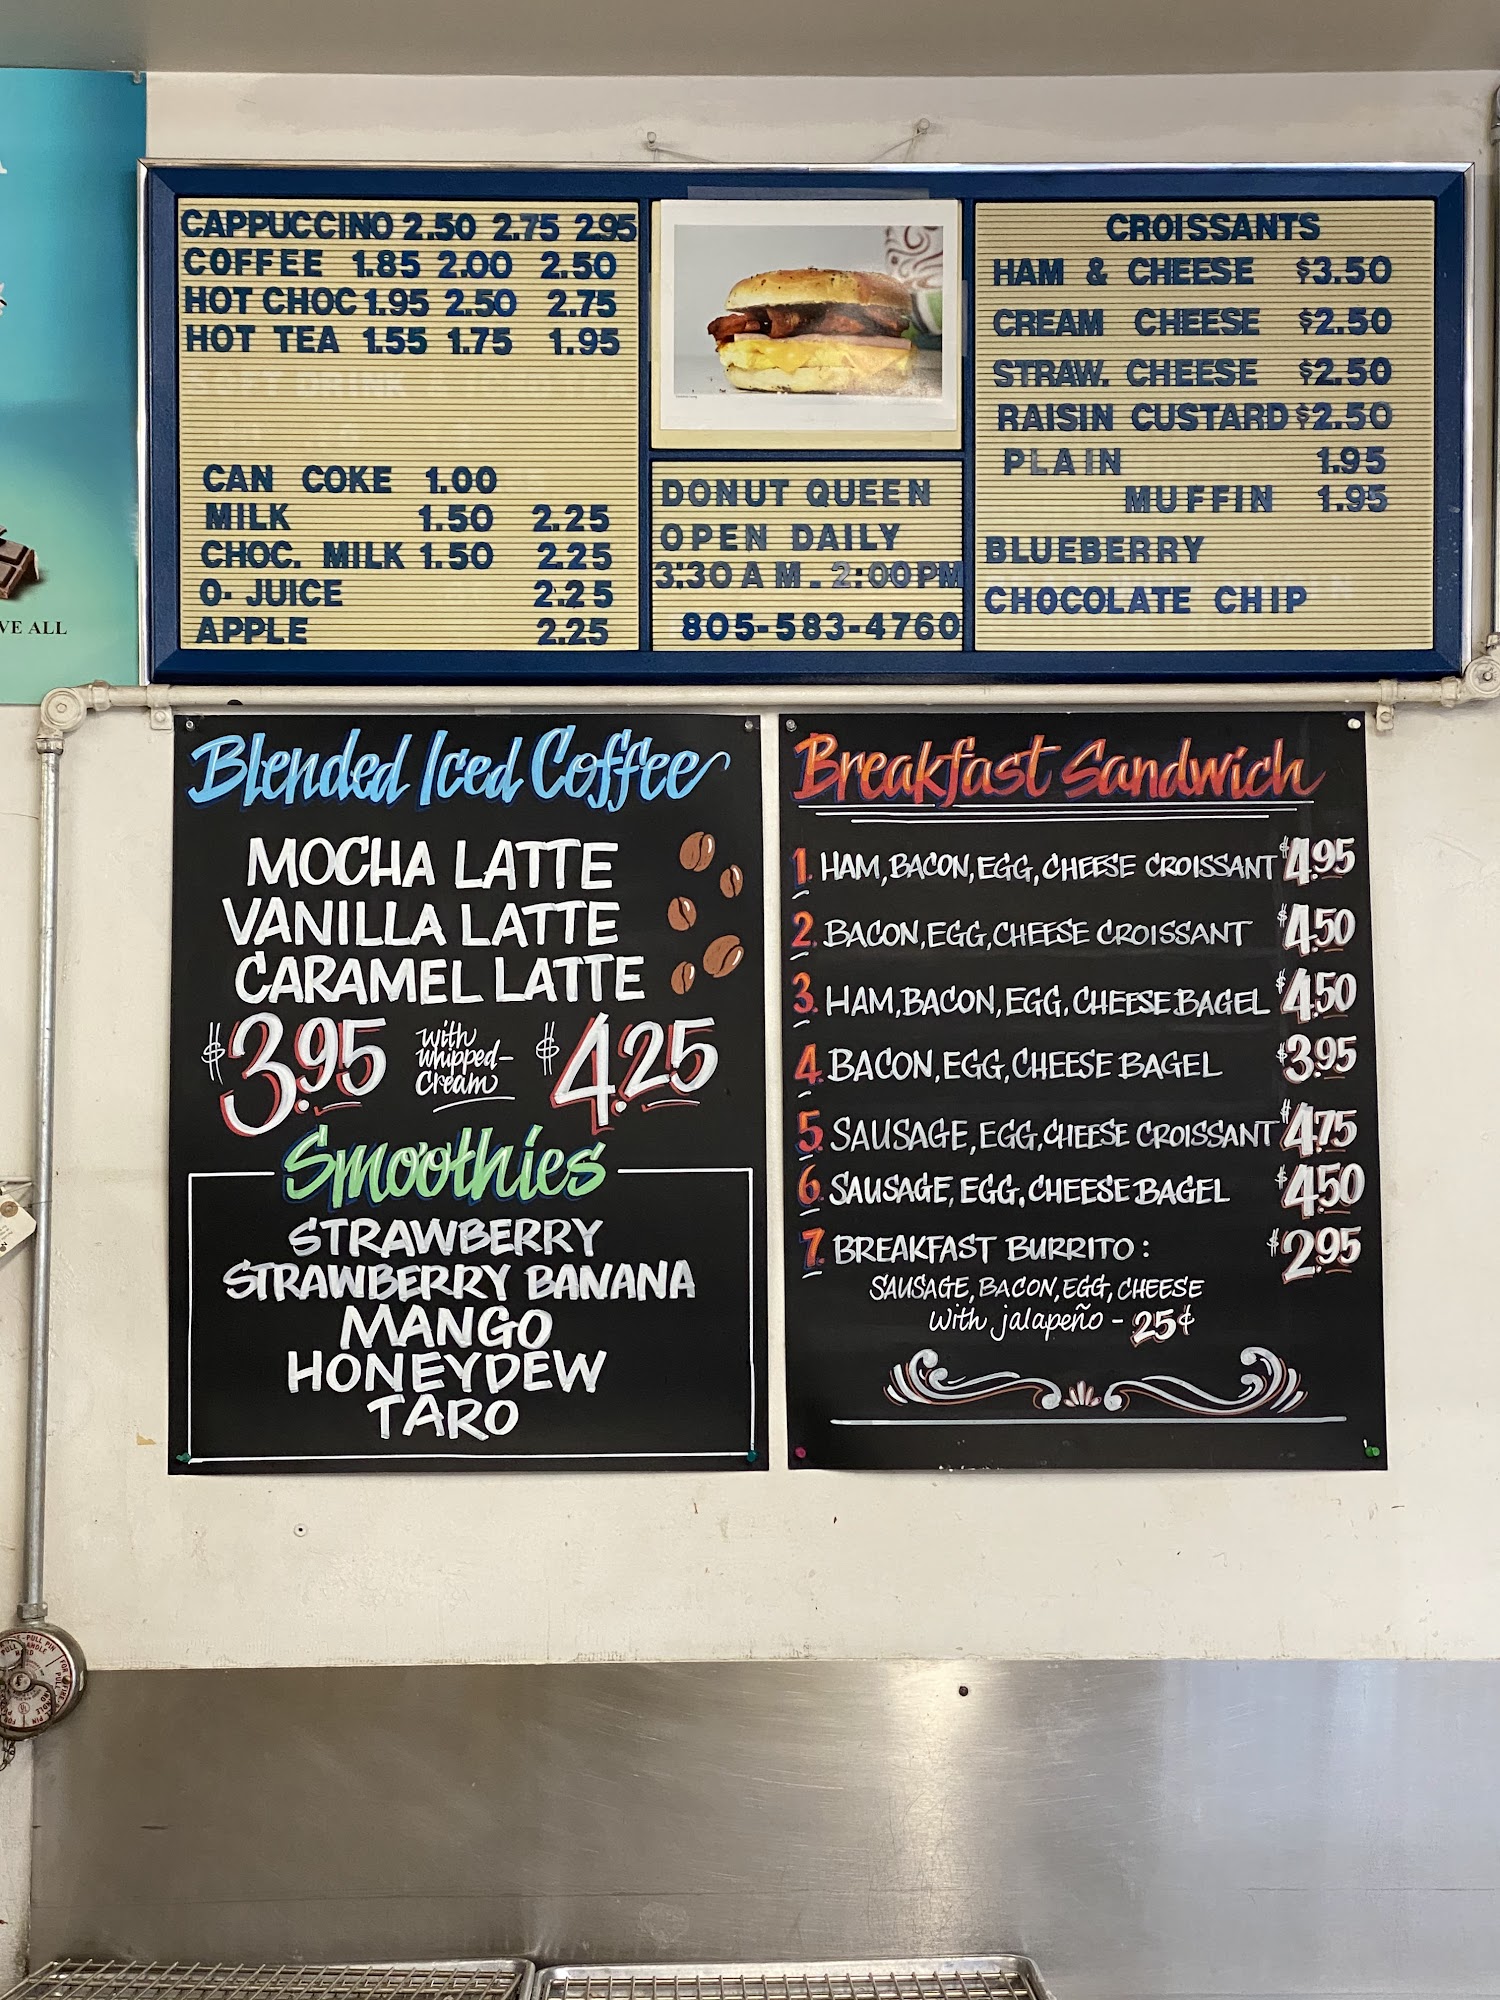 VE ALL
CAPPUCCINO 2.50 2.75 2.95
COFFEE 1.85 2.00 2.50
HOT CHOC 1.95 2.50 2.75
HOT TEA 1.55 1.75 1.95
CAN COKE 1.00
MILK 1.50 2.25
CHOC. MILK 1.50 2.25
O- JUICE 2.25
APPLE 2.25
DONUT QUEEN
OPEN DAILY
3:30 AM. 2:00 PM
805-583-4760
CROISSANTS
HAM & CHEESE $3.50
CREAM CHEESE $2.50
STRAW. CHEESE $2.50
RAISIN CUSTARD $2.50
PLAIN 1.95
MUFFIN 1.95
BLUEBERRY
CHOCOLATE CHIP
Blended Iced Coffee
MOCHA LATTE
VANILLA LATTE
CARAMEL LATTE
$3.95 with whipped-cream $4.25
Smoothies
STRAWBERRY
STRAWBERRY BANANA
MANGO
HONEYDEW
TARO
Breakfast Sandwich
1. HAM, BACON, EGG, CHEESE CROISSANT $4.95
2. BACON, EGG, CHEESE CROISSANT $4.50
3. HAM, BACON, EGG, CHEESE BAGEL $4.50
4. BACON, EGG, CHEESE BAGEL $3.95
5. SAUSAGE, EGG, CHEESE CROISSANT $4.75
6. SAUSAGE, EGG, CHEESE BAGEL $4.50
7. BREAKFAST BURRITO: $2.95
SAUSAGE, BACON, EGG, CHEESE
with jalapeño - 25¢